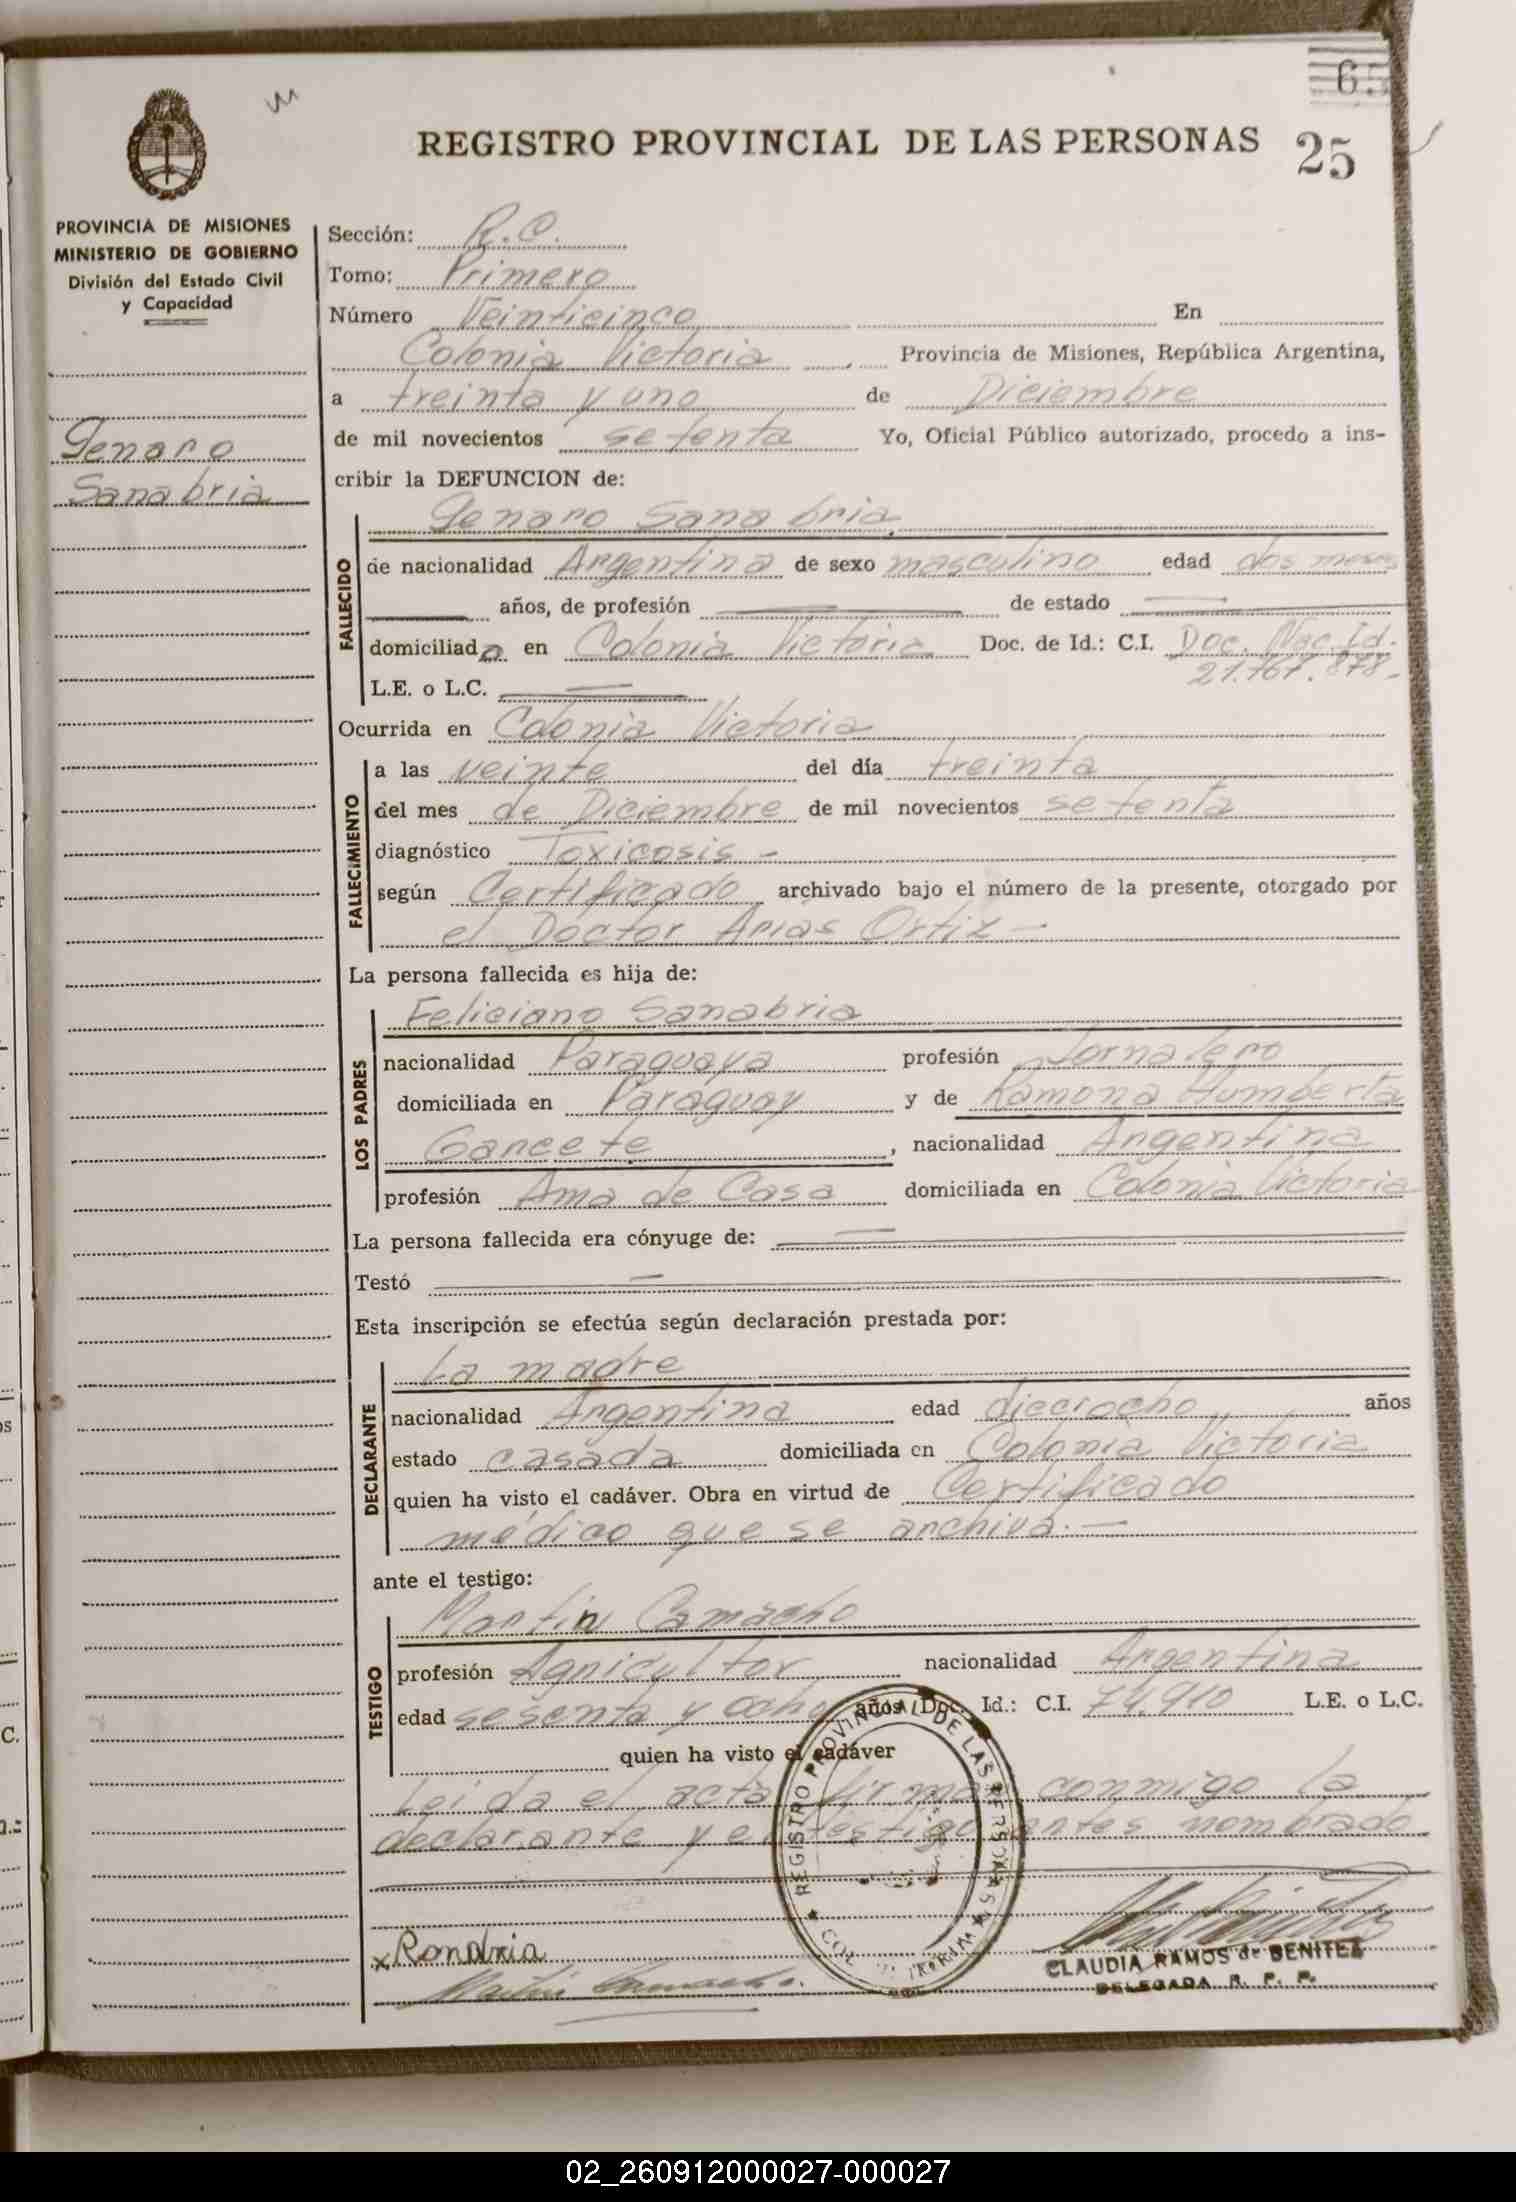 65
REGISTRO PROVINCIAL DE LAS PERSONAS 25
PROVINCIA DE MISIONES
MINISTERIO DE GOBIERNO
División del Estado Civil
y Capacidad
Genaro
Sanabria
Sección: R.C.
Tomo: Primero
Número Veinticinco En
Colonia Victoria, Provincia de Misiones, República Argentina,
a treinta y uno de Diciembre
de mil novecientos setenta Yo, Oficial Público autorizado, procedo a ins-
cribir la DEFUNCION de:
Genaro Sanabria
FALLECIDO
de nacionalidad Argentina de sexo masculino edad dos meses
años, de profesión de estado
domiciliado en Colonia Victoria Doc. de Id.: C.I. Doc. Nac. Id.
21.767.878-
L.E. o L.C.
Ocurrida en Colonia Victoria
FALLECIMIENTO
a las veinte del día treinta
del mes de Diciembre de mil novecientos setenta
diagnóstico Toxicosis -
según Certificado archivado bajo el número de la presente, otorgado por
el Doctor Arias Ortiz -
La persona fallecida es hija de:
LOS PADRES
Feliciano Sanabria
nacionalidad Paraguaya profesión Jornalero
domiciliada en Paraguay y de Ramona Humberta
Gancete, nacionalidad Argentina
profesión Ama de Casa domiciliada en Colonia Victoria
La persona fallecida era cónyuge de:
Testó
Esta inscripción se efectúa según declaración prestada por:
DECLARANTE
La madre
nacionalidad Argentina edad dieciocho años
estado casada domiciliada en Colonia Victoria
quien ha visto el cadáver. Obra en virtud de Certificado
médico que se archiva. -
ante el testigo:
TESTIGO
Martin Camacho
profesión Agricultor nacionalidad Argentina
edad sesenta y ocho años Doc. Id.: C.I. 74.910 L.E. o L.C.
quien ha visto el cadáver
Leida el acta firman conmigo la
declarante y el testigo antes nombrado
REGISTRO PROVINCIAL DE LAS PERSONAS
x Ronabria
Martin Camacho.
CLAUDIA RAMOS de BENITEZ
DELEGADA R. P. P.
02_260912000027-000027